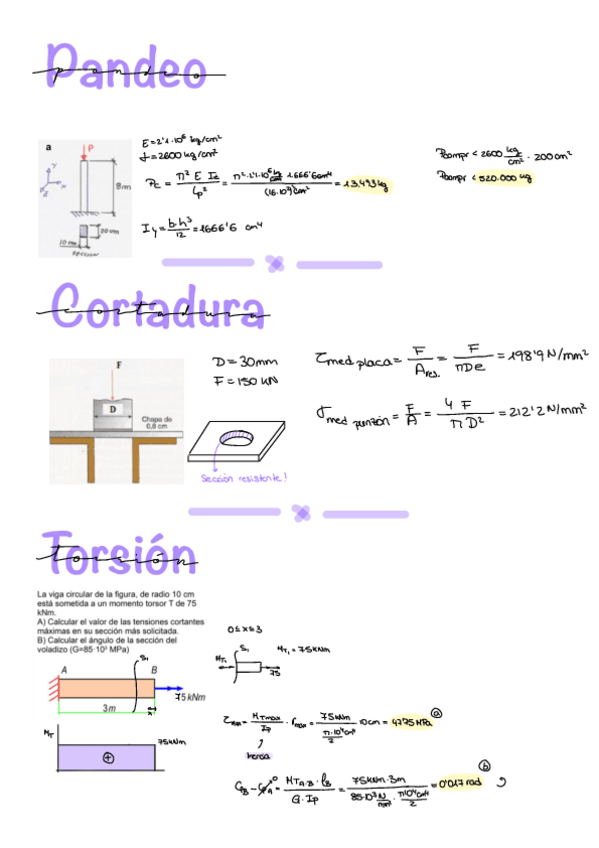 Pandeo
pandeo
a
P
8m
20 cm
10 cm
sección
E = 2'1·10⁶ kg/cm²
σ = 2600 kg/cm²
Pc = π² E Iz / Lp² = π²·2'1·10⁶ kg/cm² · 1.666'6 cm⁴ / (16·10²)² cm² = 13.493 kg
Iy = b·h³ / 12 = 1666'6 cm⁴
Pcompr < 2600 kg/cm² · 200 cm²
Pcompr < 520.000 kg
Cortadura
cortadura
F
D
Chapa de
0,8 cm
D = 30mm
F = 150 kN
Sección resistente!
τmed placa = F / Ares. = F / πDe = 198'9 N/mm²
σmed punzón = F / A = 4 F / π D² = 212'2 N/mm²
Torsión
torsión
La viga circular de la figura, de radio 10 cm
está sometida a un momento torsor T de 75
kNm.
A) Calcular el valor de las tensiones cortantes
máximas en su sección más solicitada.
B) Calcular el ángulo de la sección del
voladizo (G=85·10³ MPa)
S₁
A
B
75 kNm
3 m
x
MT
75kNm
+
0 ≤ x ≤ 3
MT₁
S₁
75
MT₁ = 75kNm
τmax = MTmax / Ip · rmax = 75kNm / π·10⁴cm⁴ / 2 · 10cm = 47'75 MPa
a
φB - φA = MTA-B · lB / G · Ip = 75kNm · 3m / 85·10³ N/mm² · π10⁴cm⁴ / 2 = 0'017 rad
0
b